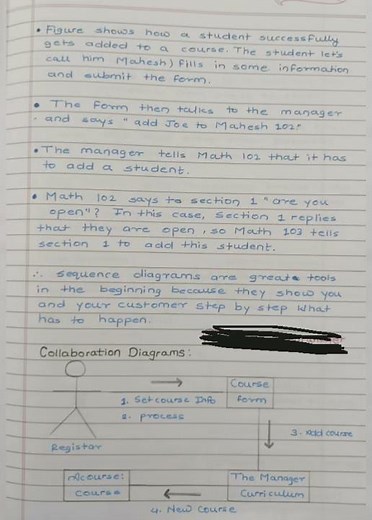 • Figure shows how a student successfully
gets added to a course. The student let's
call him Mahesh) Fills in some information
and submit the form.
• The Form then talks to the manager
and says "add Joe to Mahesh 102!
• The manager tells Math 102 that it has
to add a student.
• Math 102 says to section 1 "are you
open"? In this case, Section 1 replies
that they are open, so Math 103 tells
section 1 to add this student.
∴ sequence diagrams are great tools
in the beginning because they show you
and your customer step by step what
has to happen.
Collaboration Diagrams:
Course
form
1. Set course Info
2. process
3. Add course
Registar
course:
course
The Manager
Curriculum
4. New Course